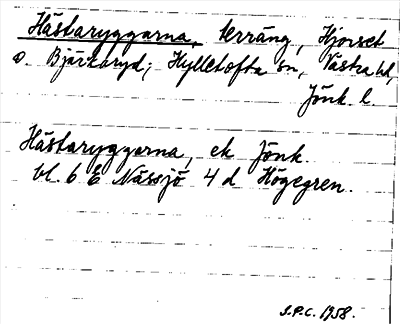 Hästaryggarna, terräng, Hjorset
o. Bjärkaryd; Hylletofta sn, Västra hd,
Jönk. l.
Hästaryggarna, ek Jönk.
bl. 6 E Nässjö 4 d Högegren.
S.P.C. 1958.